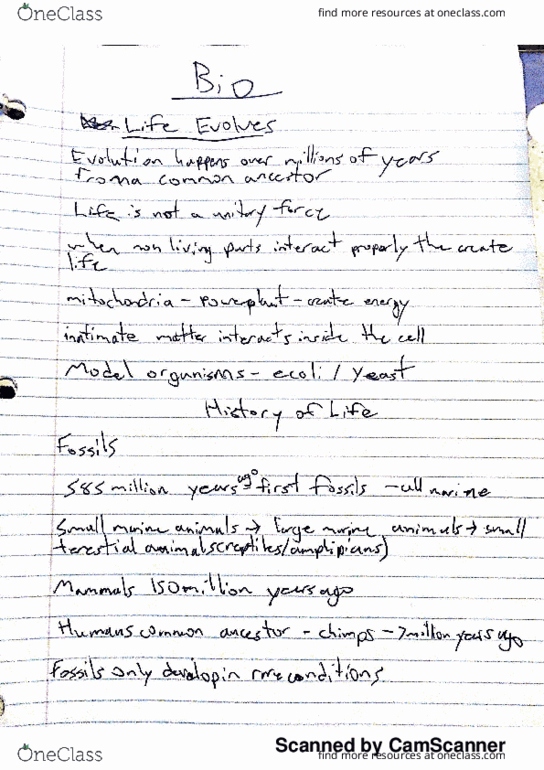 OneClass
find more resources at oneclass.com
Bio
Life Evolves
Evolution happens over millions of years
from a common ancestor
Life is not a unitary force
when non living parts interact properly the create
life
mitochondria - powerplant - create energy
inatimate matter interacts inside the cell
Model organisms - ecoli / yeast
History of Life
Fossils
585 million years ago - first fossils - all marine
Small marine animals → large marine animals → small
terestial animals (reptiles/amplipians)
Mammals 150 million years ago
Humans common ancestor - chimps - 7 million years ago
Fossils only develop in rare conditions
Scanned by CamScanner
OneClass
find more resources at oneclass.com